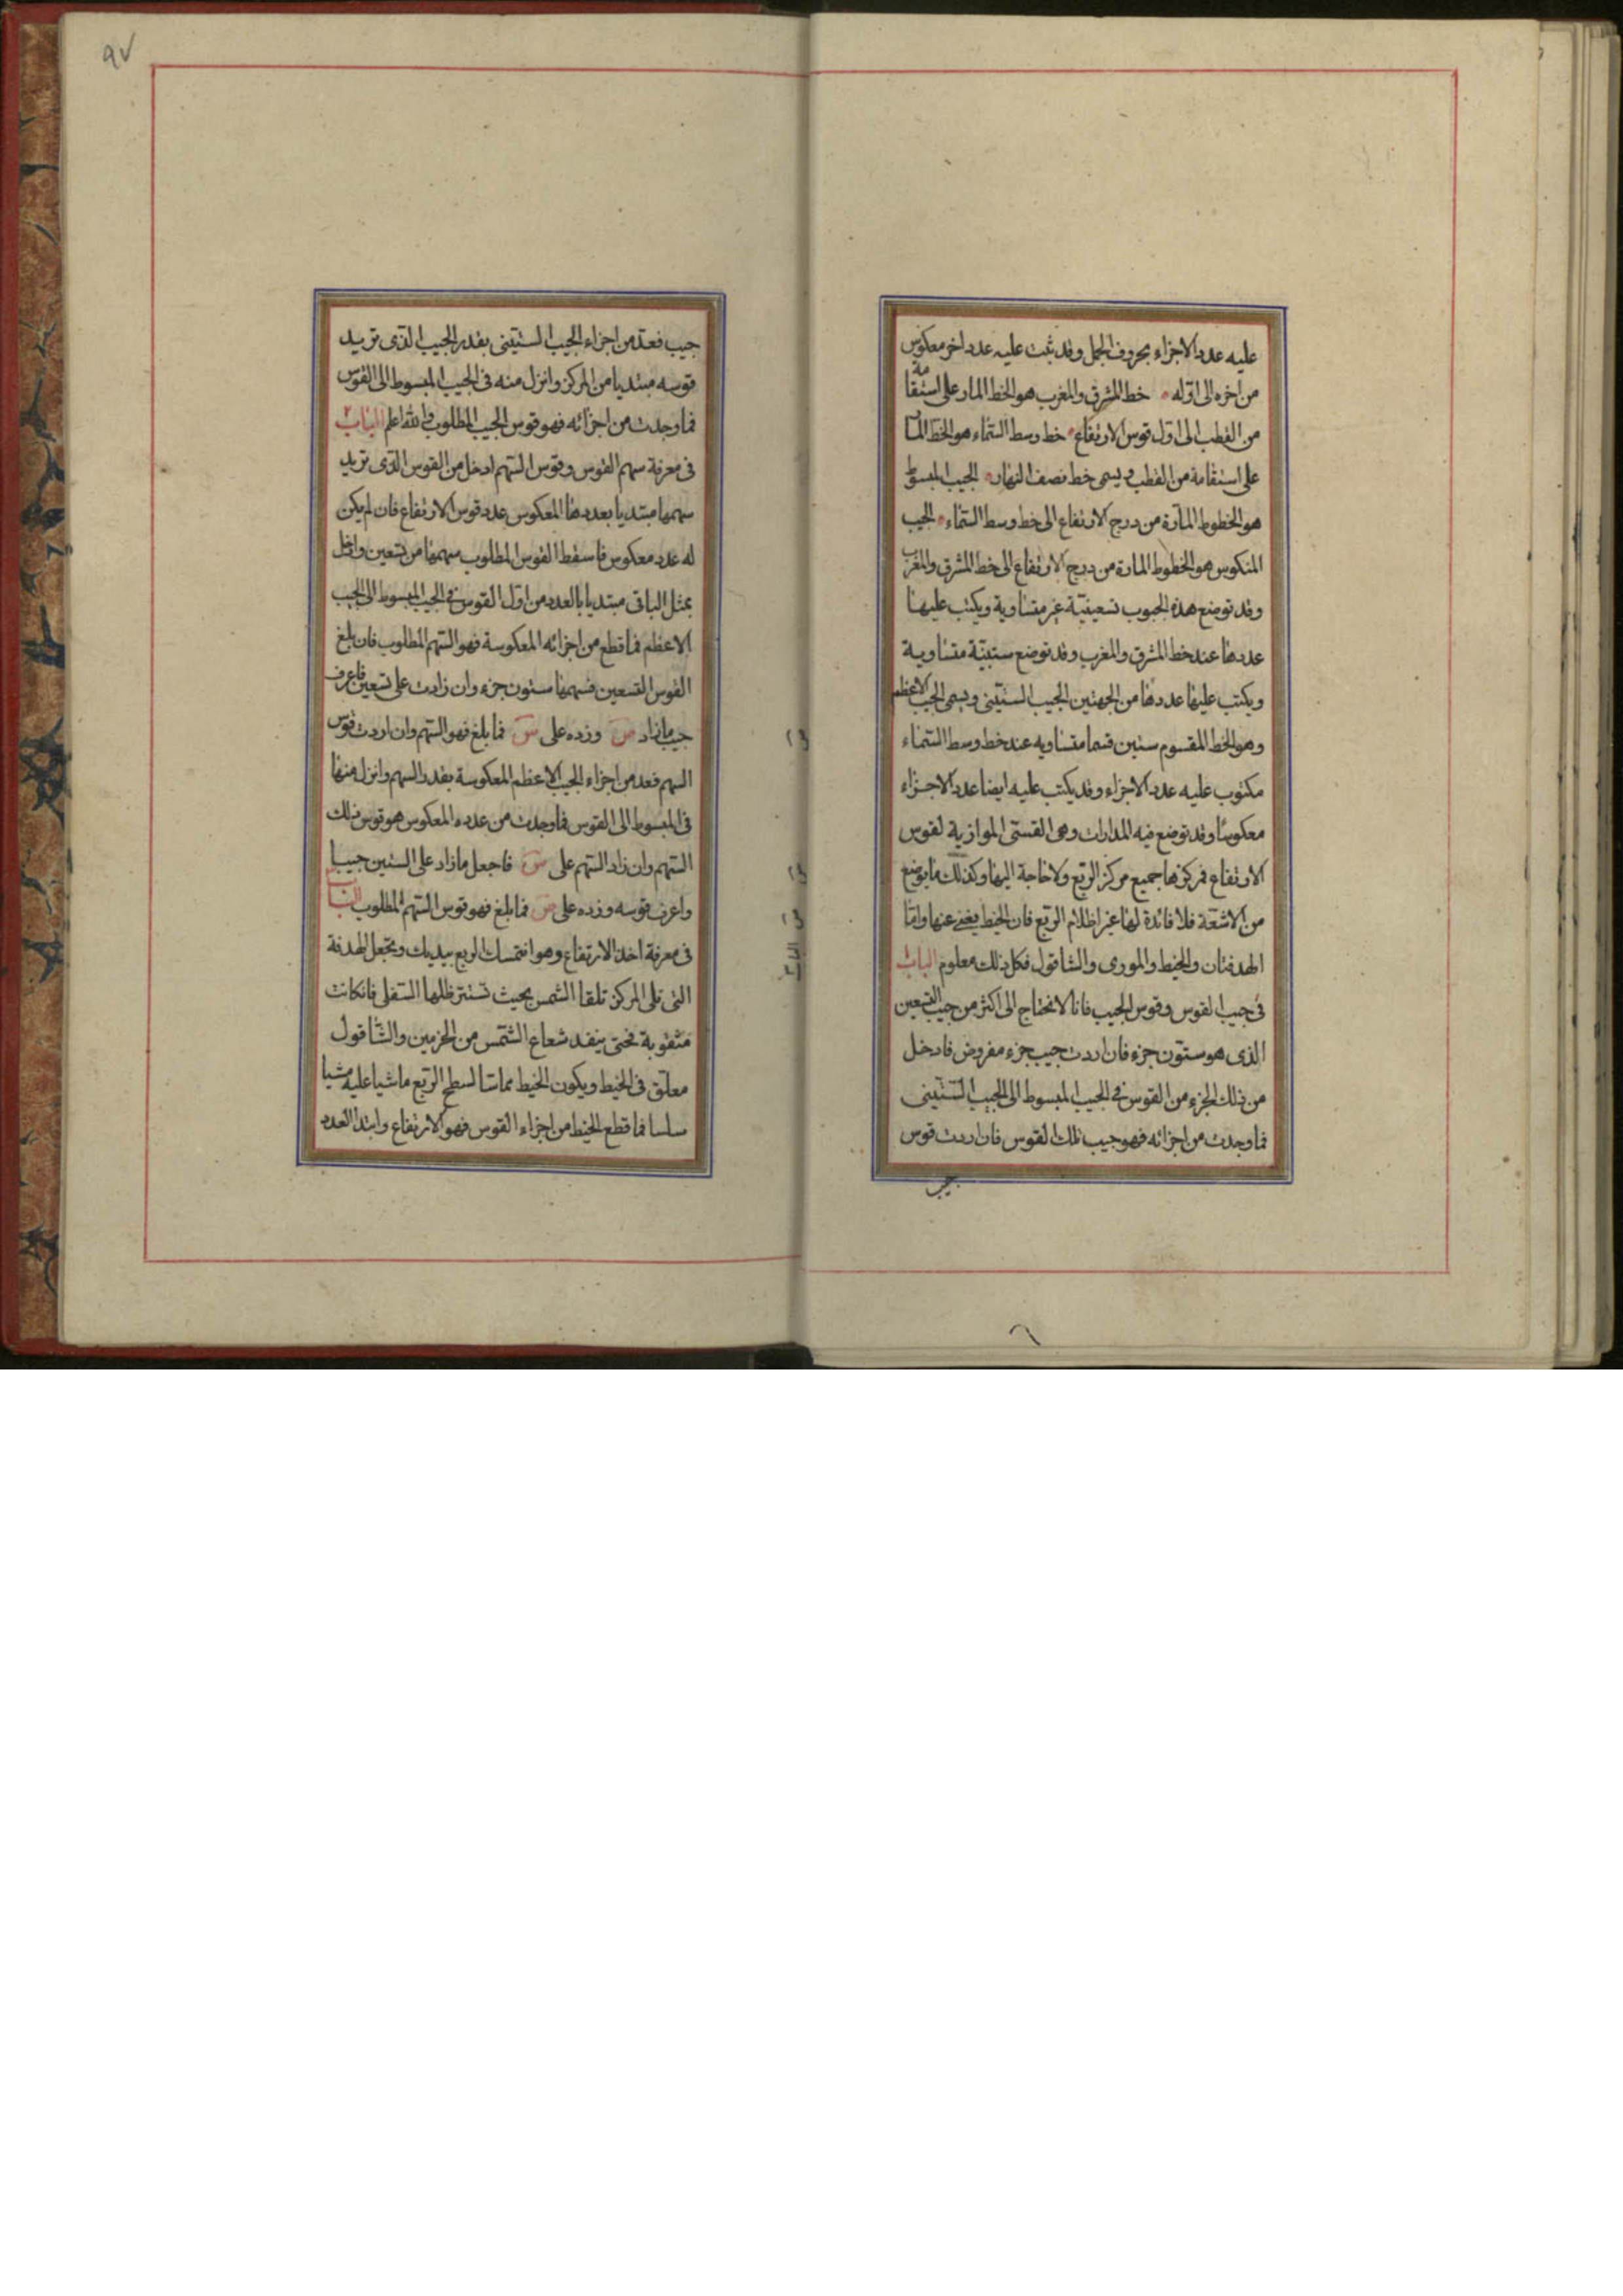 عليه عدد الاجزاء بحروف الجمل وقد ثبت عليه عدد اخر معكوس
من اخره الى اوله خط المشرق والمغرب هو الخط المار على استقامة
من القطب الى اول قوس الارتفاع خط وسط السماء هو الخط المآ
على استقامة من القطب ويسمى خط نصف النهار الجيب المبسوط
هو الخطوط المارة من درج الارتفاع الى خط وسط السماء الجيب
المنكوس هو الخطوط المارة من درج الارتفاع الى خط المشرق والمغرب
وقد توضع هذه الجيوب تسعينيّة غير متساوية ويكتب عليها
عددها عند خط المشرق والمغرب وقد توضع ستينيّة متساوية
ويكتب عليها عددها من الجهتين الجيب الستينى ويسمى الجيب الاعظم
وهو الخط المقسوم ستين قسما متساويه عند خط وسط السماء
مكتوب عليه عدد الاجزاء وقد يكتب عليه ايضا عدد الاجزاء
معكوسًا وقد توضع فيه المدارات وهى القسىّ الموازية لقوس
الارتفاع فمركزها جميع مركز الربع ولا حاجة اليها وكذلك ما يوضع
من الاشعّة فلا فائدة لها غير اظلام الربع فان الخيط يغنى عنها وامّا
الهدفتان والخيط والمورى والشاقول فكل ذلك معلوم الباب
فى جيب القوس وقوس الجيب فانا لا نحتاج الى اكثر من جيب التسعين
الذى هو ستّون جزء فان اردت جيب جزء مفروض فادخل
من ذلك الجزء من القوس فى الجيب المبسوط الى الجيب الستّينى
فما وجدت من اجزائه فهو جيب تلك القوس فان اردت قوس
جيب
جيب فعدّ من اجزاء الجيب الستّينى بقدر الجيب الذى تريد
قوسه مبتديا من المركز وانزل منه فى الجيب المبسوط الى القوس
فما وجدت من اجزائه فهو قوس الجيب المطلوب والله اعلم الباب ٢
فى معرفة سهم القوس وقوس السهم ادخل من القوس الذى تريد
سهمها مبتديا بعددها المعكوس عدد قوس الارتفاع فان لم يكن
له عدد معكوس فاسقط القوس المطلوب سهمها من تسعين وادخل
بمثل الباقى مبتديا بالعدد من اول القوس فى الجيب المبسوط الى الجيب
الاعظم فما قطع من اجزائه المعكوسة فهو السهم المطلوب فان بلغ
القوس التسعين فسهمها ستون جزء وان زادت على تسعين فاعرف
جيب ما زاد ص وزده على س فما بلغ فهو السهم وان اردت قوس
السهم فعد من اجزاء الجيب الاعظم المعكوسة بقدر السهم وانزل منها
فى المبسوط الى القوس فما وجدت من عدده المعكوس هو قوس ذلك
السهم وان زاد السهم على س فاجعل ما زاد على الستين جيبا
واعرف قوسه وزده على ص فما بلغ فهو قوس السهم المطلوب الباب
فى معرفة اخذ الارتفاع وهو ان تمسك الربع بيديك وتجعل الهدفة
التى تلى المركز تلقا الشمس بحيث تستتر ظلها السفلى فان كانت
مثقوبة فحتى ينفد شعاع الشمس من الخرمين والشاقول
معلّق فى الخيط ويكون الخيط مماسّا لسطح الربع ماشيا عليه مشيا
سلسا فما قطع الخيط من اجزاء القوس فهو الارتفاع وابتدا العدد
٩٧